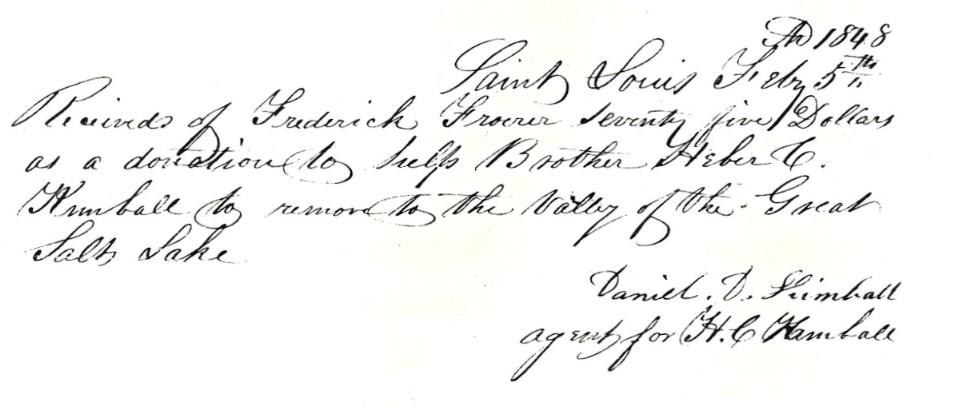 AD 1848
Saint Louis Feby 5th
Received of Frederick Froerer seventy five Dollars
as a donation to help Brother Heber C.
Kimball to remove to the Valley of the Great
Salt Lake
Daniel. D. Kimball
agent for H. C Kimball